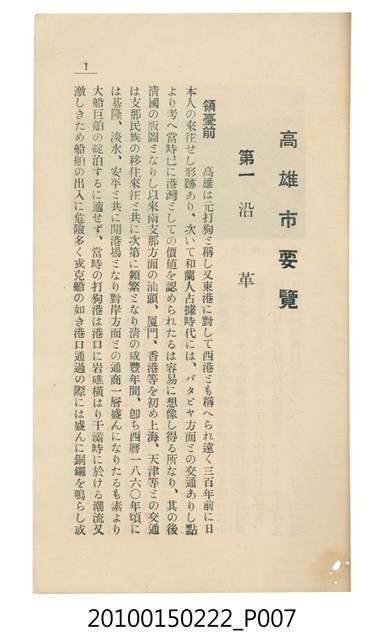 高雄市要覽
第一 沿革
領臺前 高雄は元打狗と稱し又東港に對して西港とも稱へられ遠く三百年前に日
本人の來往せし形跡あり、次いで和蘭人占據時代には、バタビヤ方面との交通ありし點
より考へ當時已に港灣としての價値を認められたるは容易に想像し得る所なり、其の後
淸國の版圖となりし以來南支那方面の汕頭、厦門、香港等を初め上海、天津等との交通
は支那民族の移住來往と共に次第に頻繁となり淸の咸豐年間、卽ち西曆一八六〇年頃に
は基隆、淡水、安平と共に開港場となり對岸方面との通商一層盛んになりたるも素より
大船巨舶の碇泊するに適せず、當時の打狗港は港口に岩礁橫はり干滿時に於ける潮流又
激しきため船舶の出入に危險多く戎克船の如き港口通過の際には盛んに銅鑼を鳴らし或
1
20100150222_P007